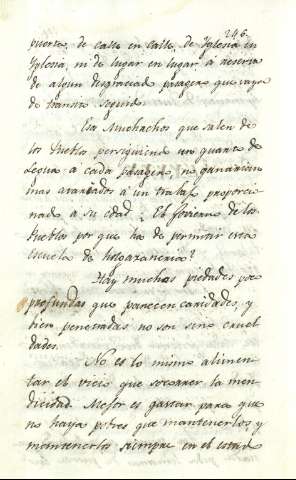 246.
puerta, de calle en calle, de Yglesia en
Yglesia, ni de lugar en lugar á reserva
de algun desgraciado pasagero que vaya
de transito seguido.
Esos Muchachos que salen de
los Pueblos persiguiendo un quarto de
Legua á cada pasagero, no ganarian
mas aplicados á un trabajo proporcio
nado á su edad? El Govierno de los
Pueblos por que ha de permitir esta
escuela de holgazaneria?
Hay muchas piedades poco
profundas que parecen caridades, y
bien penetradas no son sino cruel
dades.
No es lo mismo alimen
tar el vicio que socorrer la men
dicidad. Mejor es gastar para que
no haya pobres que mantenerlos y
mantenerlos siempre en el estado